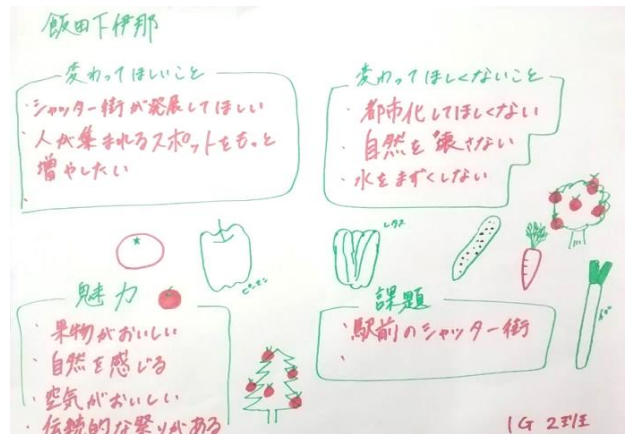 飯田下伊那
変わってほしいこと
・シャッター街が発展してほしい
・人が集まれるスポットをもっと
増やしたい
・
変わってほしくないこと
・都市化してほしくない
・自然を壊さない
・水をまずくしない
ピーマン
レタス
ねぎ
魅力
・果物がおいしい
・自然を感じる
・空気がおいしい
・伝統的な祭りがある
課題
・駅前のシャッター街
・
1G 2班